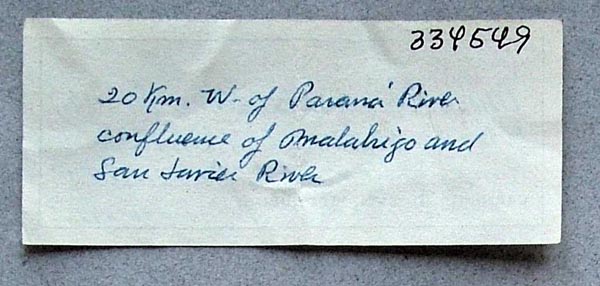 334549
20 Km. W. of Paraná River
confluence of Malabrigo and
San Javier River